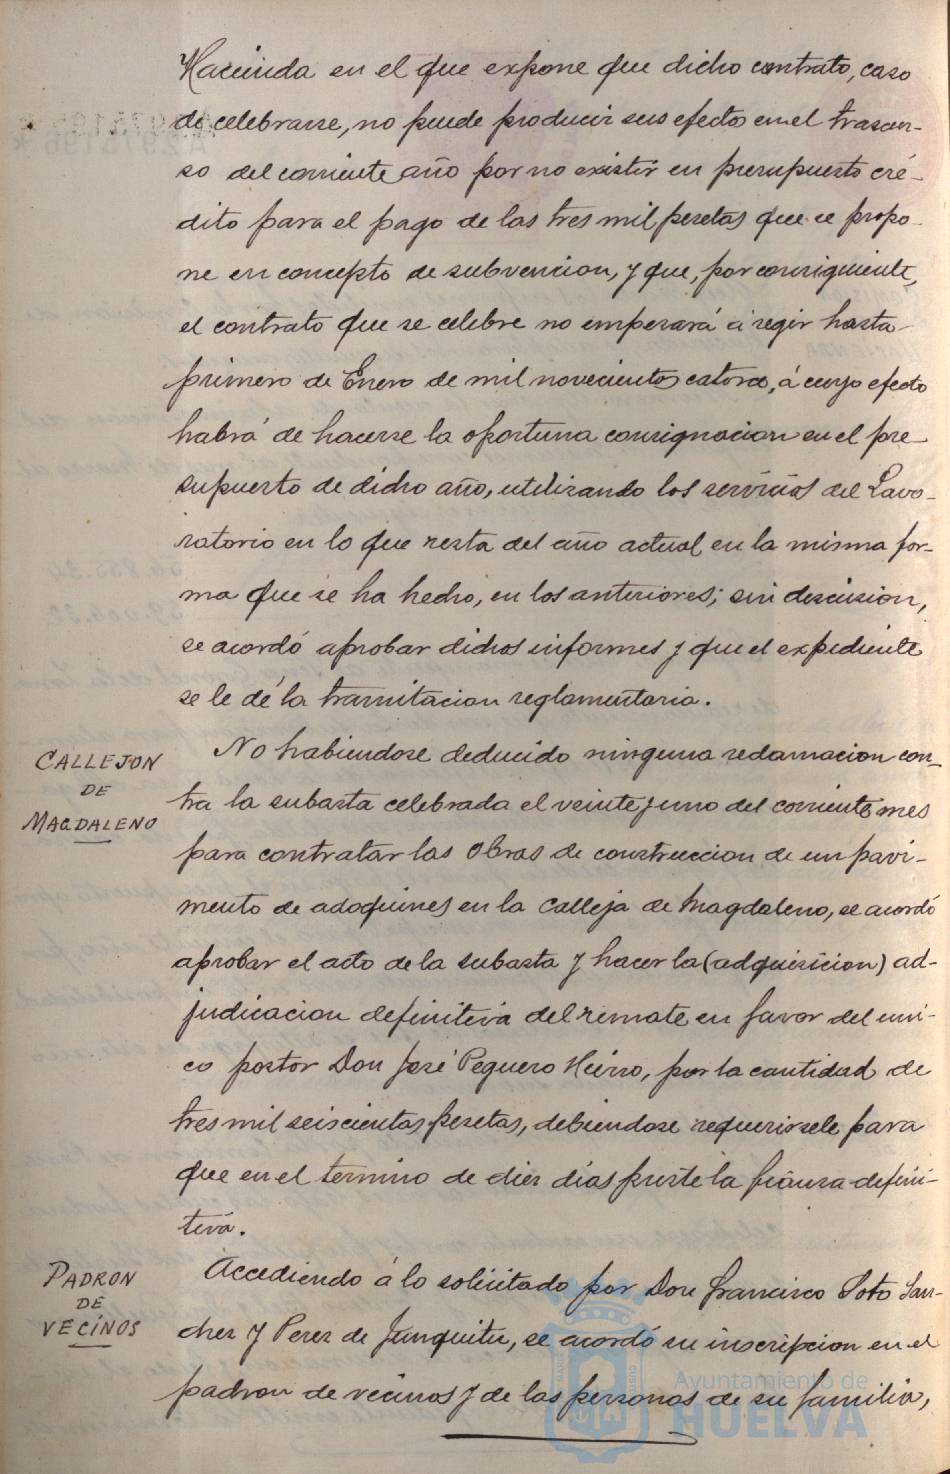 Hacienda en el que expone que dicho contrato, caso
de celebrarse, no puede producir sus efectos en el trascur-
so del corriente año por no existir en presupuesto cré-
dito para el pago de las tres mil pesetas que se propo-
ne en concepto de subvencion, y que, por consiguiente,
el contrato que se celebre no empezará á regir hasta
primero de Enero de mil novecientos catorce, á cuyo efecto
habrá de hacerse la oportuna consignacion en el pre-
supuesto de dicho año, utilizando los servicios del Lavo-
ratorio en lo que resta del año actual en la misma for-
ma que se ha hecho, en los anteriores; sin discusion,
se acordó aprobar dichos informes y que el expediente
se le dé la tramitacion reglamentaria.
CALLEJON
DE
MAGDALENO
No habiendose deducido ninguna reclamacion con-
tra la subasta celebrada el veinte y uno del corriente mes
para contratar las obras de construccion de un pavi-
mento de adoquines en la Calleja de Magdaleno, se acordó
aprobar el acto de la subasta y hacer la (adquisicion) ad-
judicacion definitiva del remate en favor del uni-
co postor Don José Peguero Hierro, por la cantidad de
tres mil seiscientas pesetas, debiendose requerirsele para
que en el termino de diez dias preste la fianza defini-
tiva.
PADRON
DE
VECINOS
Accediendo á lo solicitado por Don Francisco Soto San-
chez y Perez de Junquitu, se acordó su inscripcion en el
padron de vecinos y de las personas de su familia,
Ayuntamiento de
HUELVA